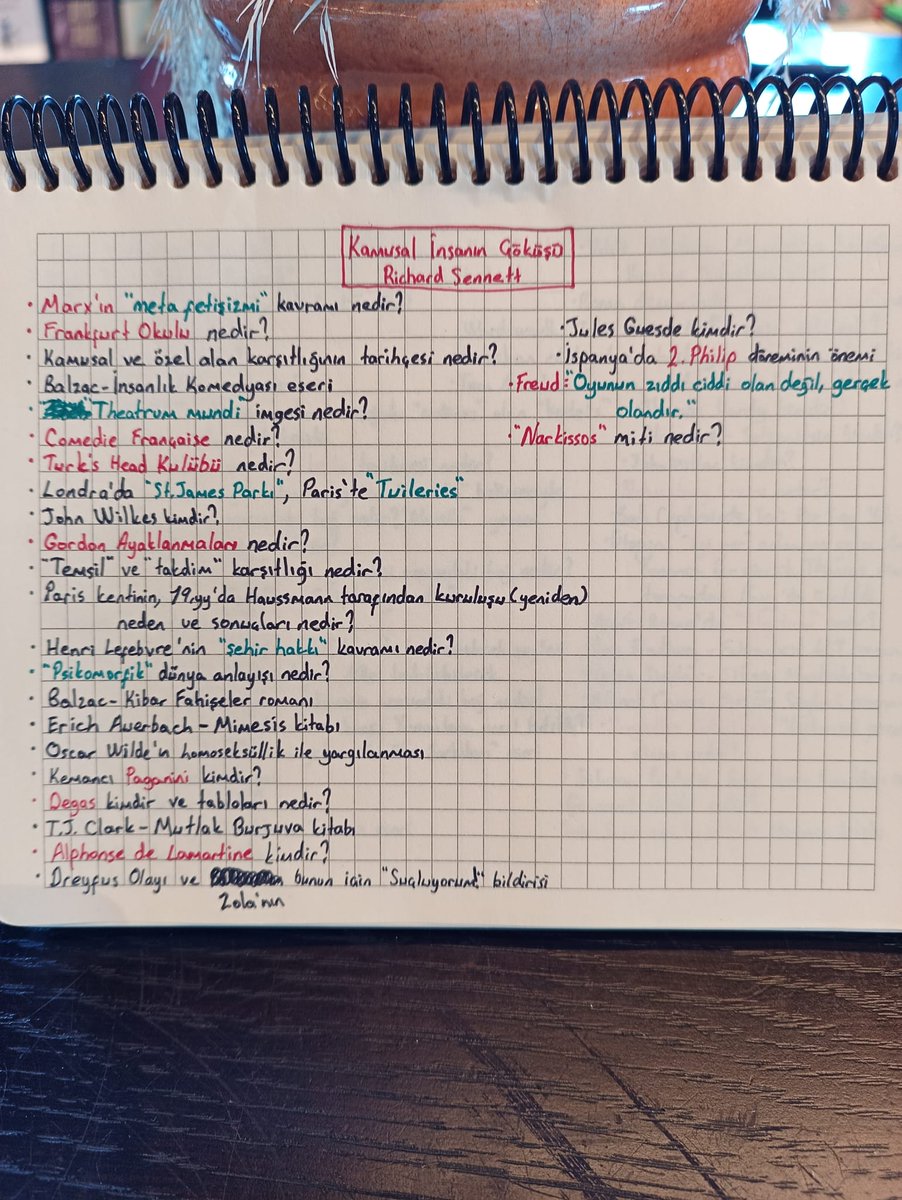 Kamusal İnsanın Çöküşü
Richard Sennett
• Marx'ın "meta fetişizmi" kavramı nedir?
• Frankfurt Okulu nedir?
• Kamusal ve özel alan karşıtlığının tarihçesi nedir?
• Balzac-İnsanlık Komedyası eseri
• "Theatrum mundi" imgesi nedir?
• Comedie Française nedir?
• Turk's Head Kulübü nedir?
• Londra'da "St. James Parkı", Paris'te "Tuileries"
• John Wilkes kimdir?
• Gordon Ayaklanmaları nedir?
• "Temsil" ve "takdim" karşıtlığı nedir?
• Paris kentinin, 19.yy'da Haussmann tarafından kuruluşu (yeniden)
neden ve sonuçları nedir?
• Henri Lefebvre'nin "şehir hakkı" kavramı nedir?
• "Psikomorfik" dünya anlayışı nedir?
• Balzac-Kibar Fahişeler romanı
• Erich Auerbach-Mimesis kitabı
• Oscar Wilde'ın homoseksüllik ile yargılanması
• Kemancı Paganini kimdir?
• Degas kimdir ve tabloları nedir?
• T.J. Clark-Mutlak Burjuva kitabı
• Alphonse de Lamartine kimdir?
• Dreyfus Olayı ve bunun için "Suçluyorum!" bildirisi
Zola'nın
• Jules Guesde kimdir?
• İspanya'da 2. Philip döneminin önemi
• Freud: "Oyunun zıddı ciddi olan değil, gerçek
olandır."
• "Narkissos" miti nedir?